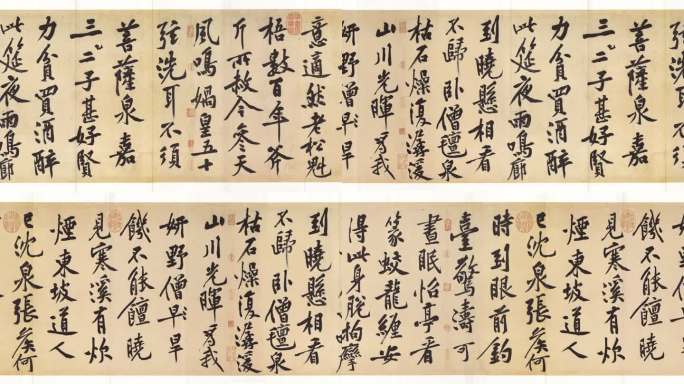 弦洗耳不須
菩薩泉嘉
三二子甚好賢
力貧買酒醉
此筵夜雨鳴廊
到曉懸相看
不歸卧僧氈泉
枯石燥復潺湲
山川光暉爲我
妍野僧早旱
意適然老松魁
梧數百年斧
斤所赦今參天
風鳴媧皇五十
弦洗耳不須
菩薩泉嘉
三二子甚好賢
力貧買酒醉
此筵夜雨鳴廊
妍野僧早旱
饑不能饘曉
見寒溪有炊
煙東坡道人
已沈泉張侯何
時到眼前釣
臺驚濤可
晝眠怡亭看
篆蛟龍纏安
得此身脫拘攣
到曉懸相看
不歸卧僧氈泉
枯石燥復潺湲
山川光暉爲我
妍野僧早旱
饑不能饘曉
見寒溪有炊
煙東坡道人
已沈泉張侯何